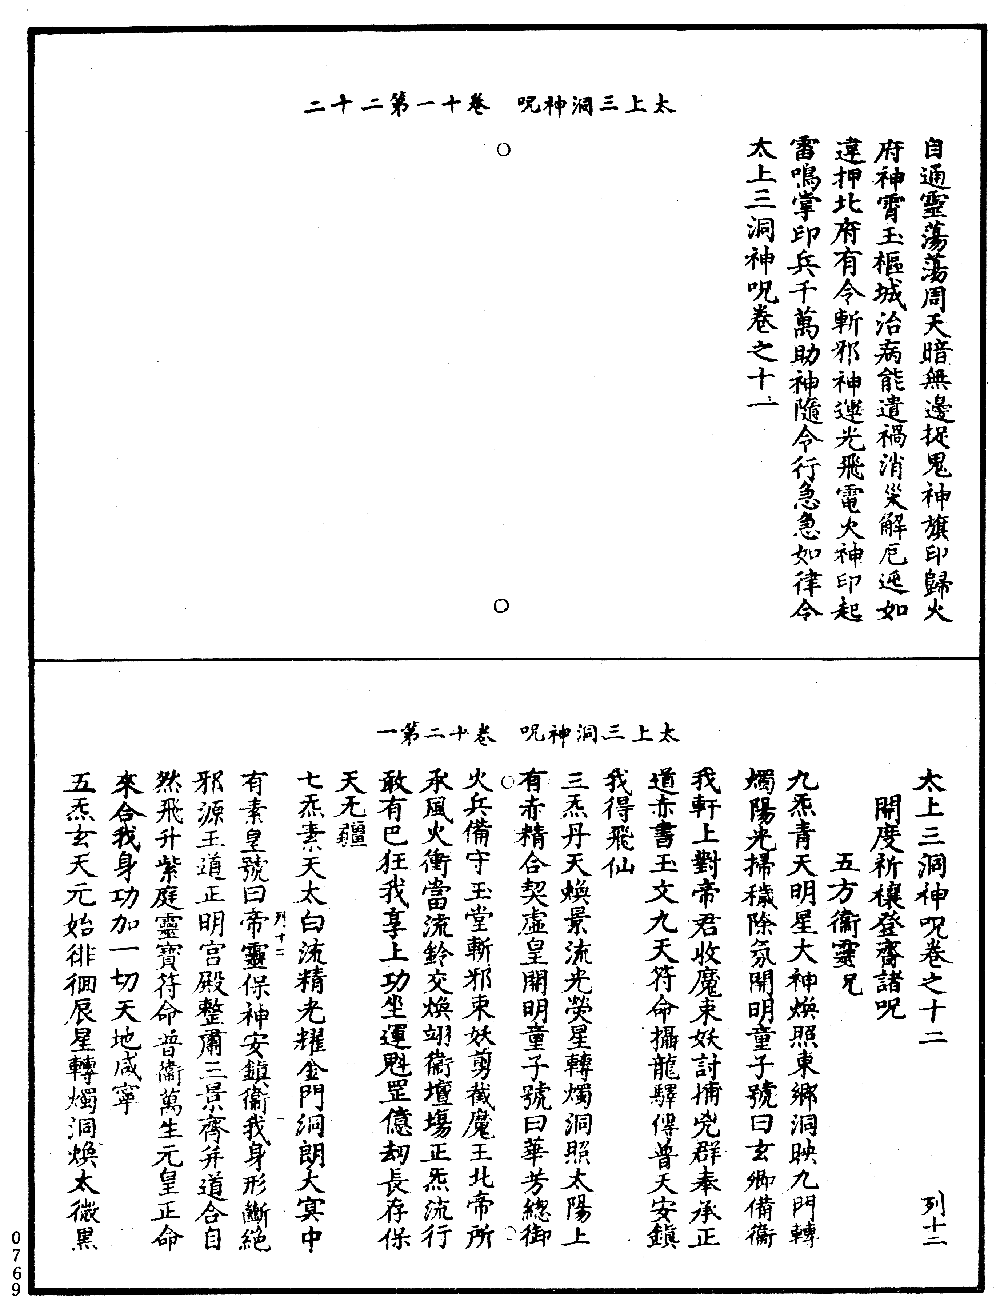 太上三洞神呪　卷十一第二十二
自通靈蕩蕩周天暗無邊捉鬼神旗印歸火
府神霄玉樞城治病能遣禍消災解厄逥如
違押北府有令斬邪神運光飛電火神印起
雷鳴掌印兵千萬助神隨令行急急如律令
太上三洞神呪卷之十一
太上三洞神呪　卷十二第一
太上三洞神呪卷之十二　列十二
開度祈禳登齋諸呪
五方衞靈呪
九炁青天明星大神煥照東鄉洞映九門轉
燭陽光掃穢除氛開明童子號曰玄卿備衞
我軒上對帝君收魔束妖討捕兇群奉承正
道赤書玉文九天符命攝龍驛傳普天安鎮
我得飛仙
三炁丹天煥景流光熒星轉燭洞照太陽上
有赤精合契虛皇開明童子號曰華芳總御
火兵備守玉堂斬邪束妖剪截魔王北帝所
承風火衝當流鈴交煥翊衞壇場正炁流行
敢有巴狂我享上功坐運魁罡億劫長存保
天无疆
七炁素天太白流精光耀金門洞朗大冥中
列十二
有素皇號曰帝靈保神安鎮衞我身形斷絕
邪源王道正明宮殿整肅三景齊并道合自
然飛升紫庭靈寶符命普衞萬生元皇正命
來合我身功加一切天地咸寧
五炁玄天元始徘徊辰星轉燭洞煥太微黑
0769